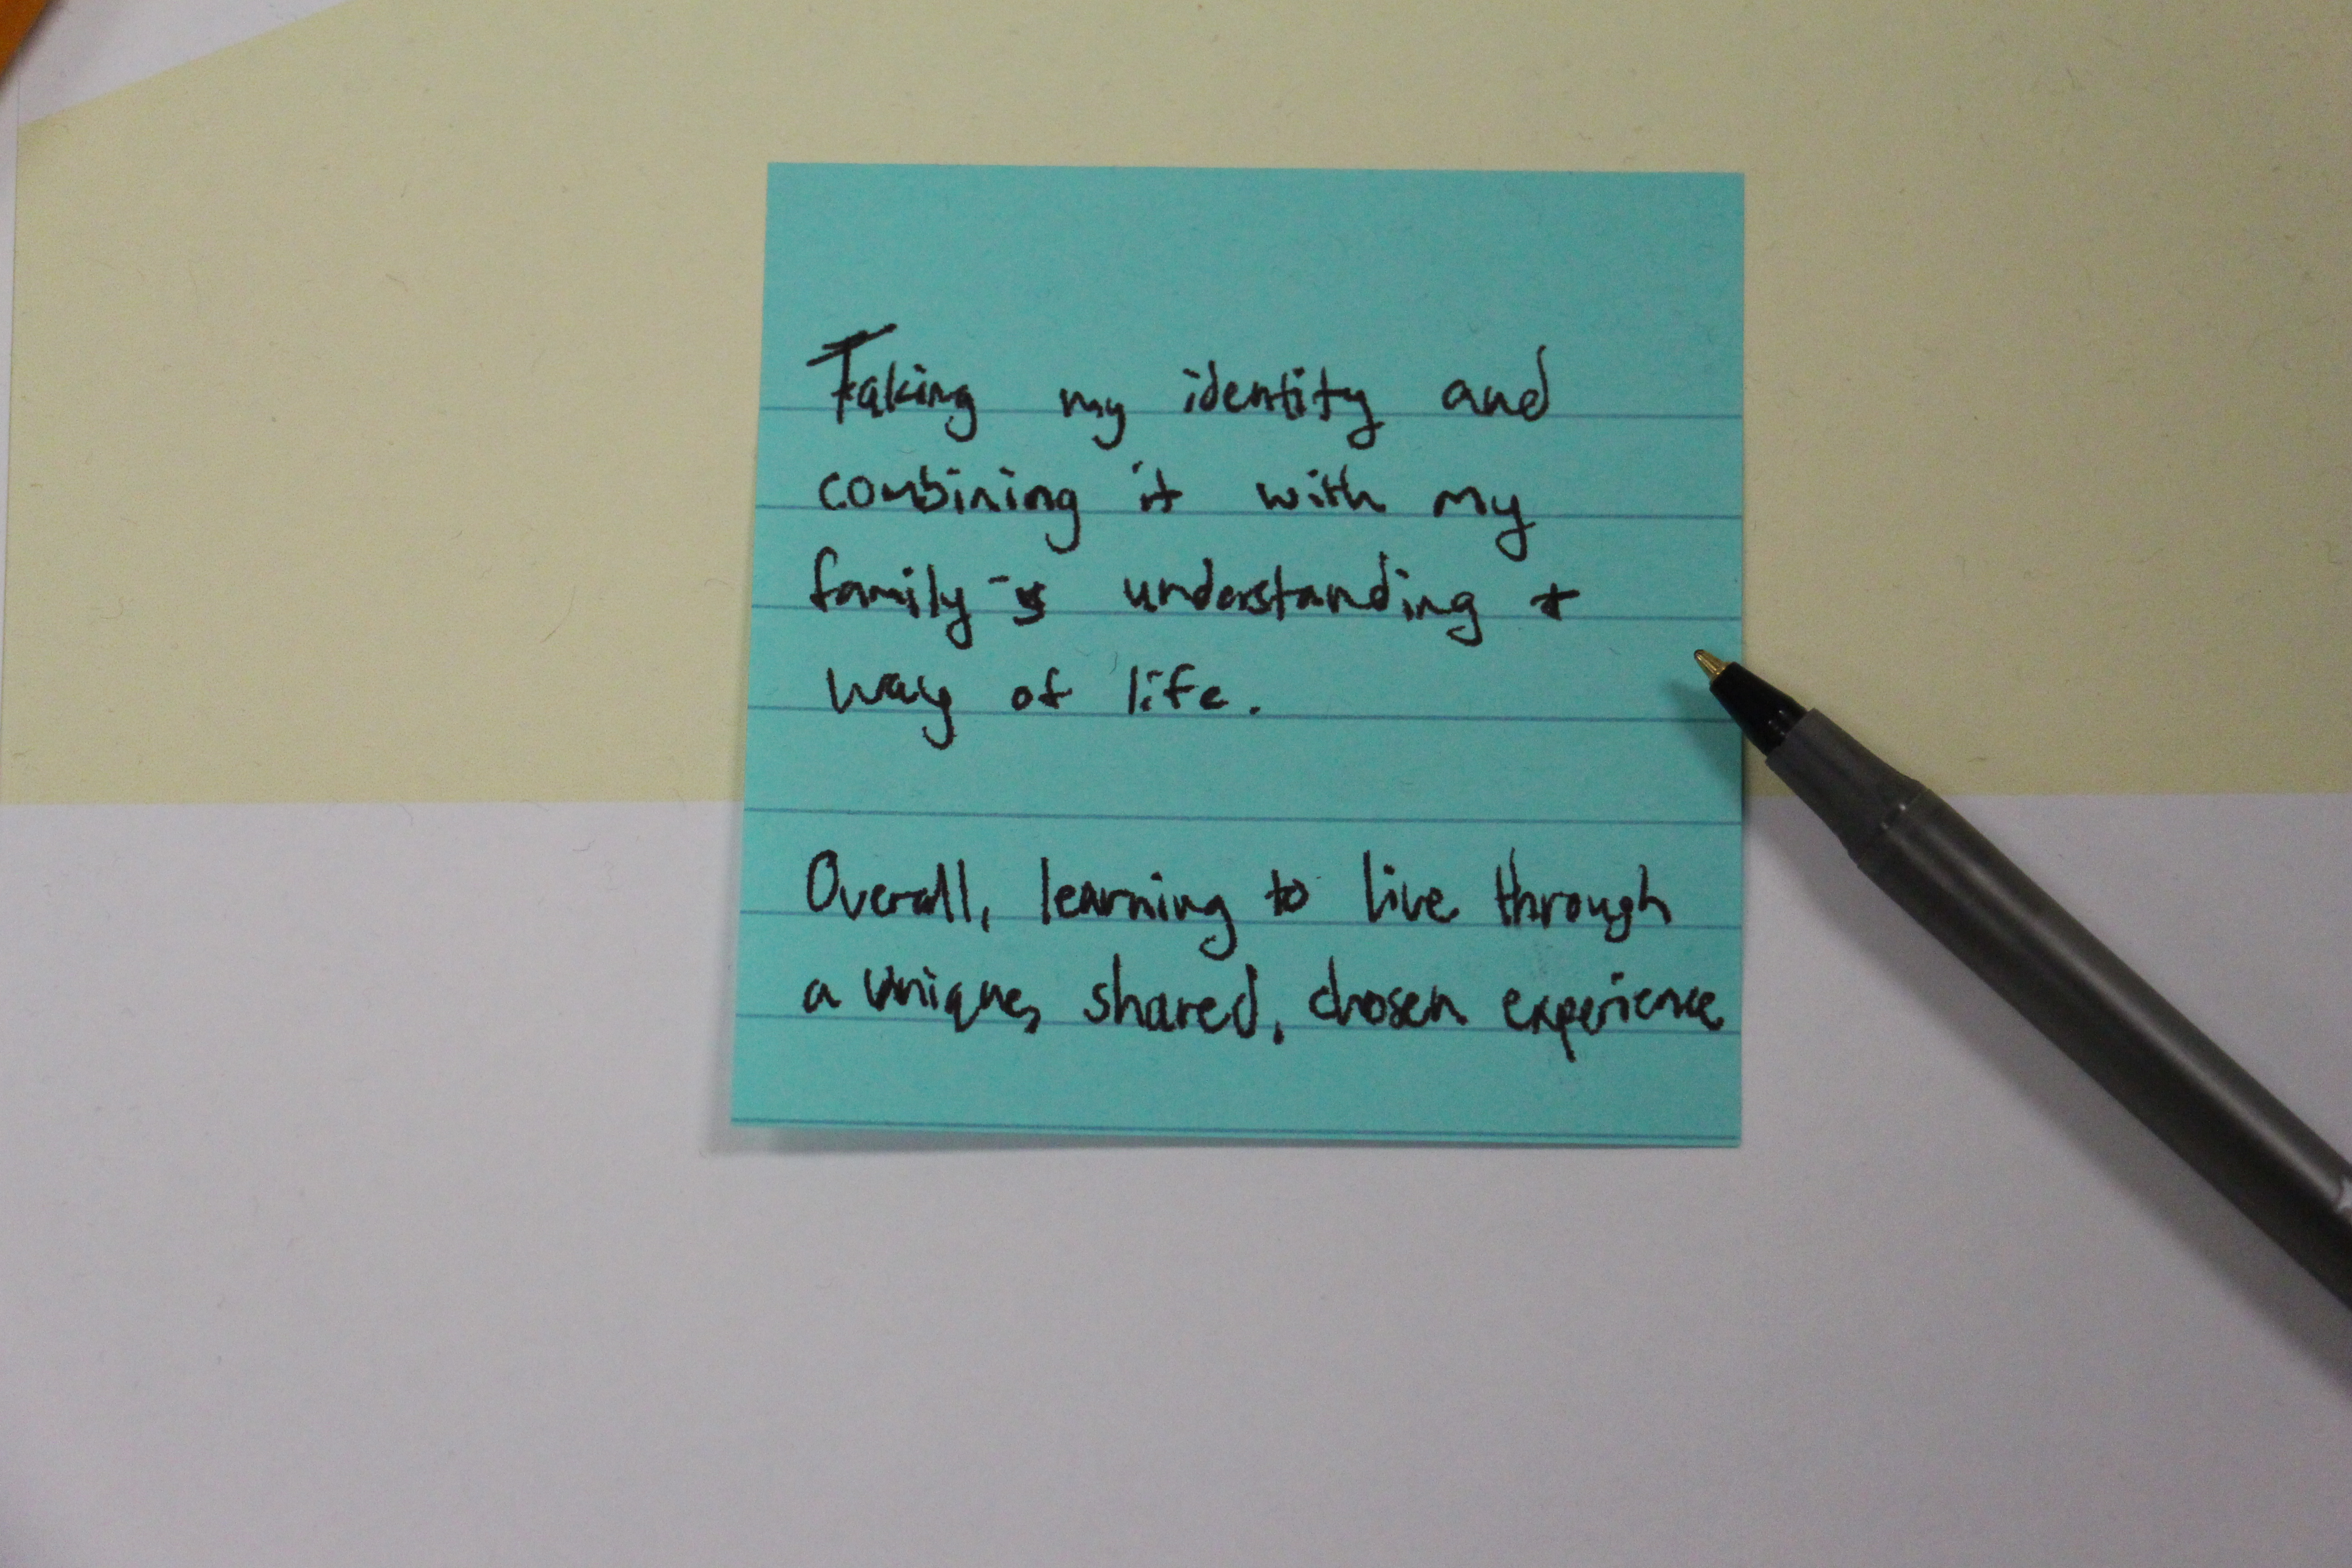 Taking my identity and
combining it with my
family's understanding +
way of life.
Overall, learning to live through
a unique, shared, chosen experience